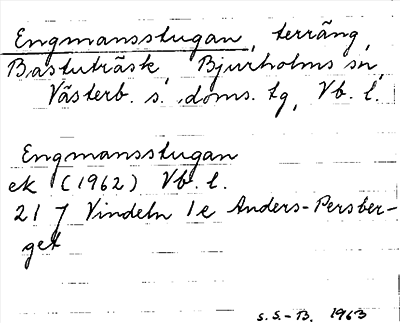 Engmansstugan, terräng,
Bastuträsk, Bjurholms sn,
Västerb. s. doms. tg, Vb. l.
Engmansstugan
ek (1962) Vb. l.
21 7 Vindeln 1e Anders-Persber-
get
S.S.-B. 1963